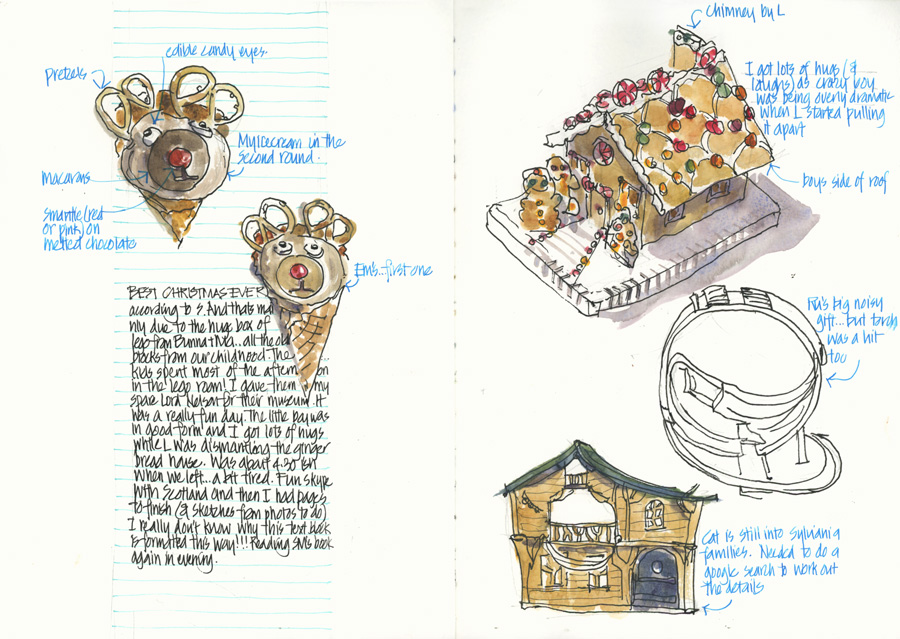 edible candy eyes.
Pretzels
My icecream in the
second round.
macarons
smarties (red
or pink) on
melted chocolate
Em's...first one
BEST CHRISTMAS EVER
according to S. And that's mai
nly due to the huge box of
lego from Bunna + Nda...all the old
blocks from our childhood. The
kids spent most of the afternoon
in the lego room! I gave them my
spare Lord Nelson for their museum. It
was a really fun day. The little boy was
in good form and I got lots of hugs
while L was dismantling the ginger
bread house. Was about 4.30ish
when we left...a bit tired. Fun skype
with Scotland and then I had pages
to finish (& sketches from photos to do)
I really don't know why this text block
is formatted this way!!! Reading book
again in evening.
chimney by L
I got lots of hugs (&
laughs) as crazy boy
was being overly dramatic
when I started pulling
it apart
boys side of roof
big noisy
gift...but torch
was a hit
too
Cat is still into Sylvania
families. Needed to do a
google search to work out
the details